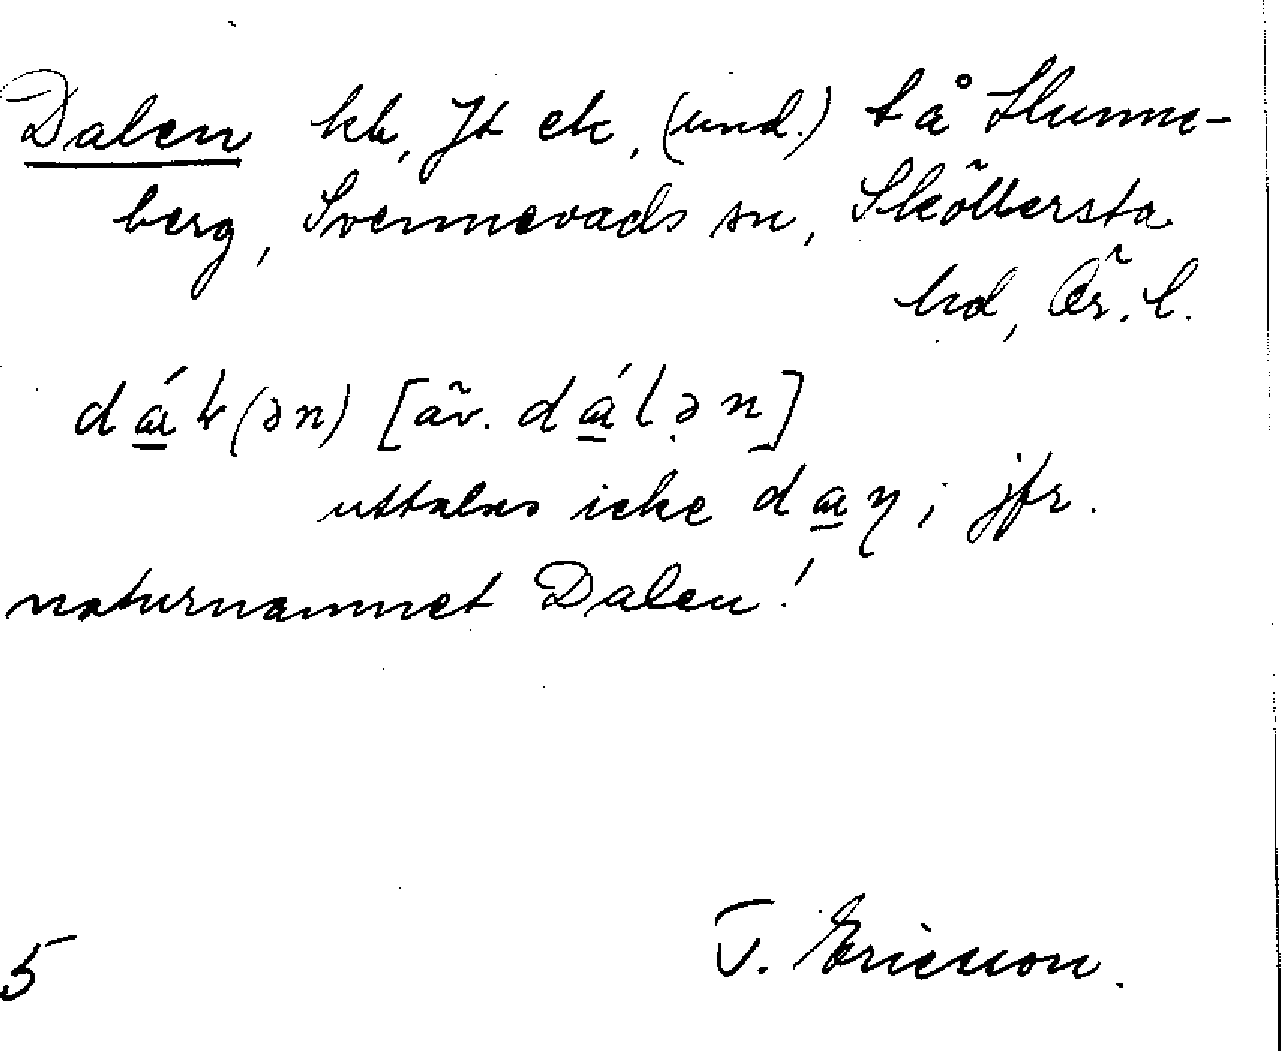 Dalen kb, Jt ek, (und.) få Slumme-
berg, Svennevads sn, Sköllersta
hd, Ör. l.
dál(ən) [äv. dálən]
uttalas icke daη; jfr.
naturnamnet Dalen!
T. Ericsson.
5